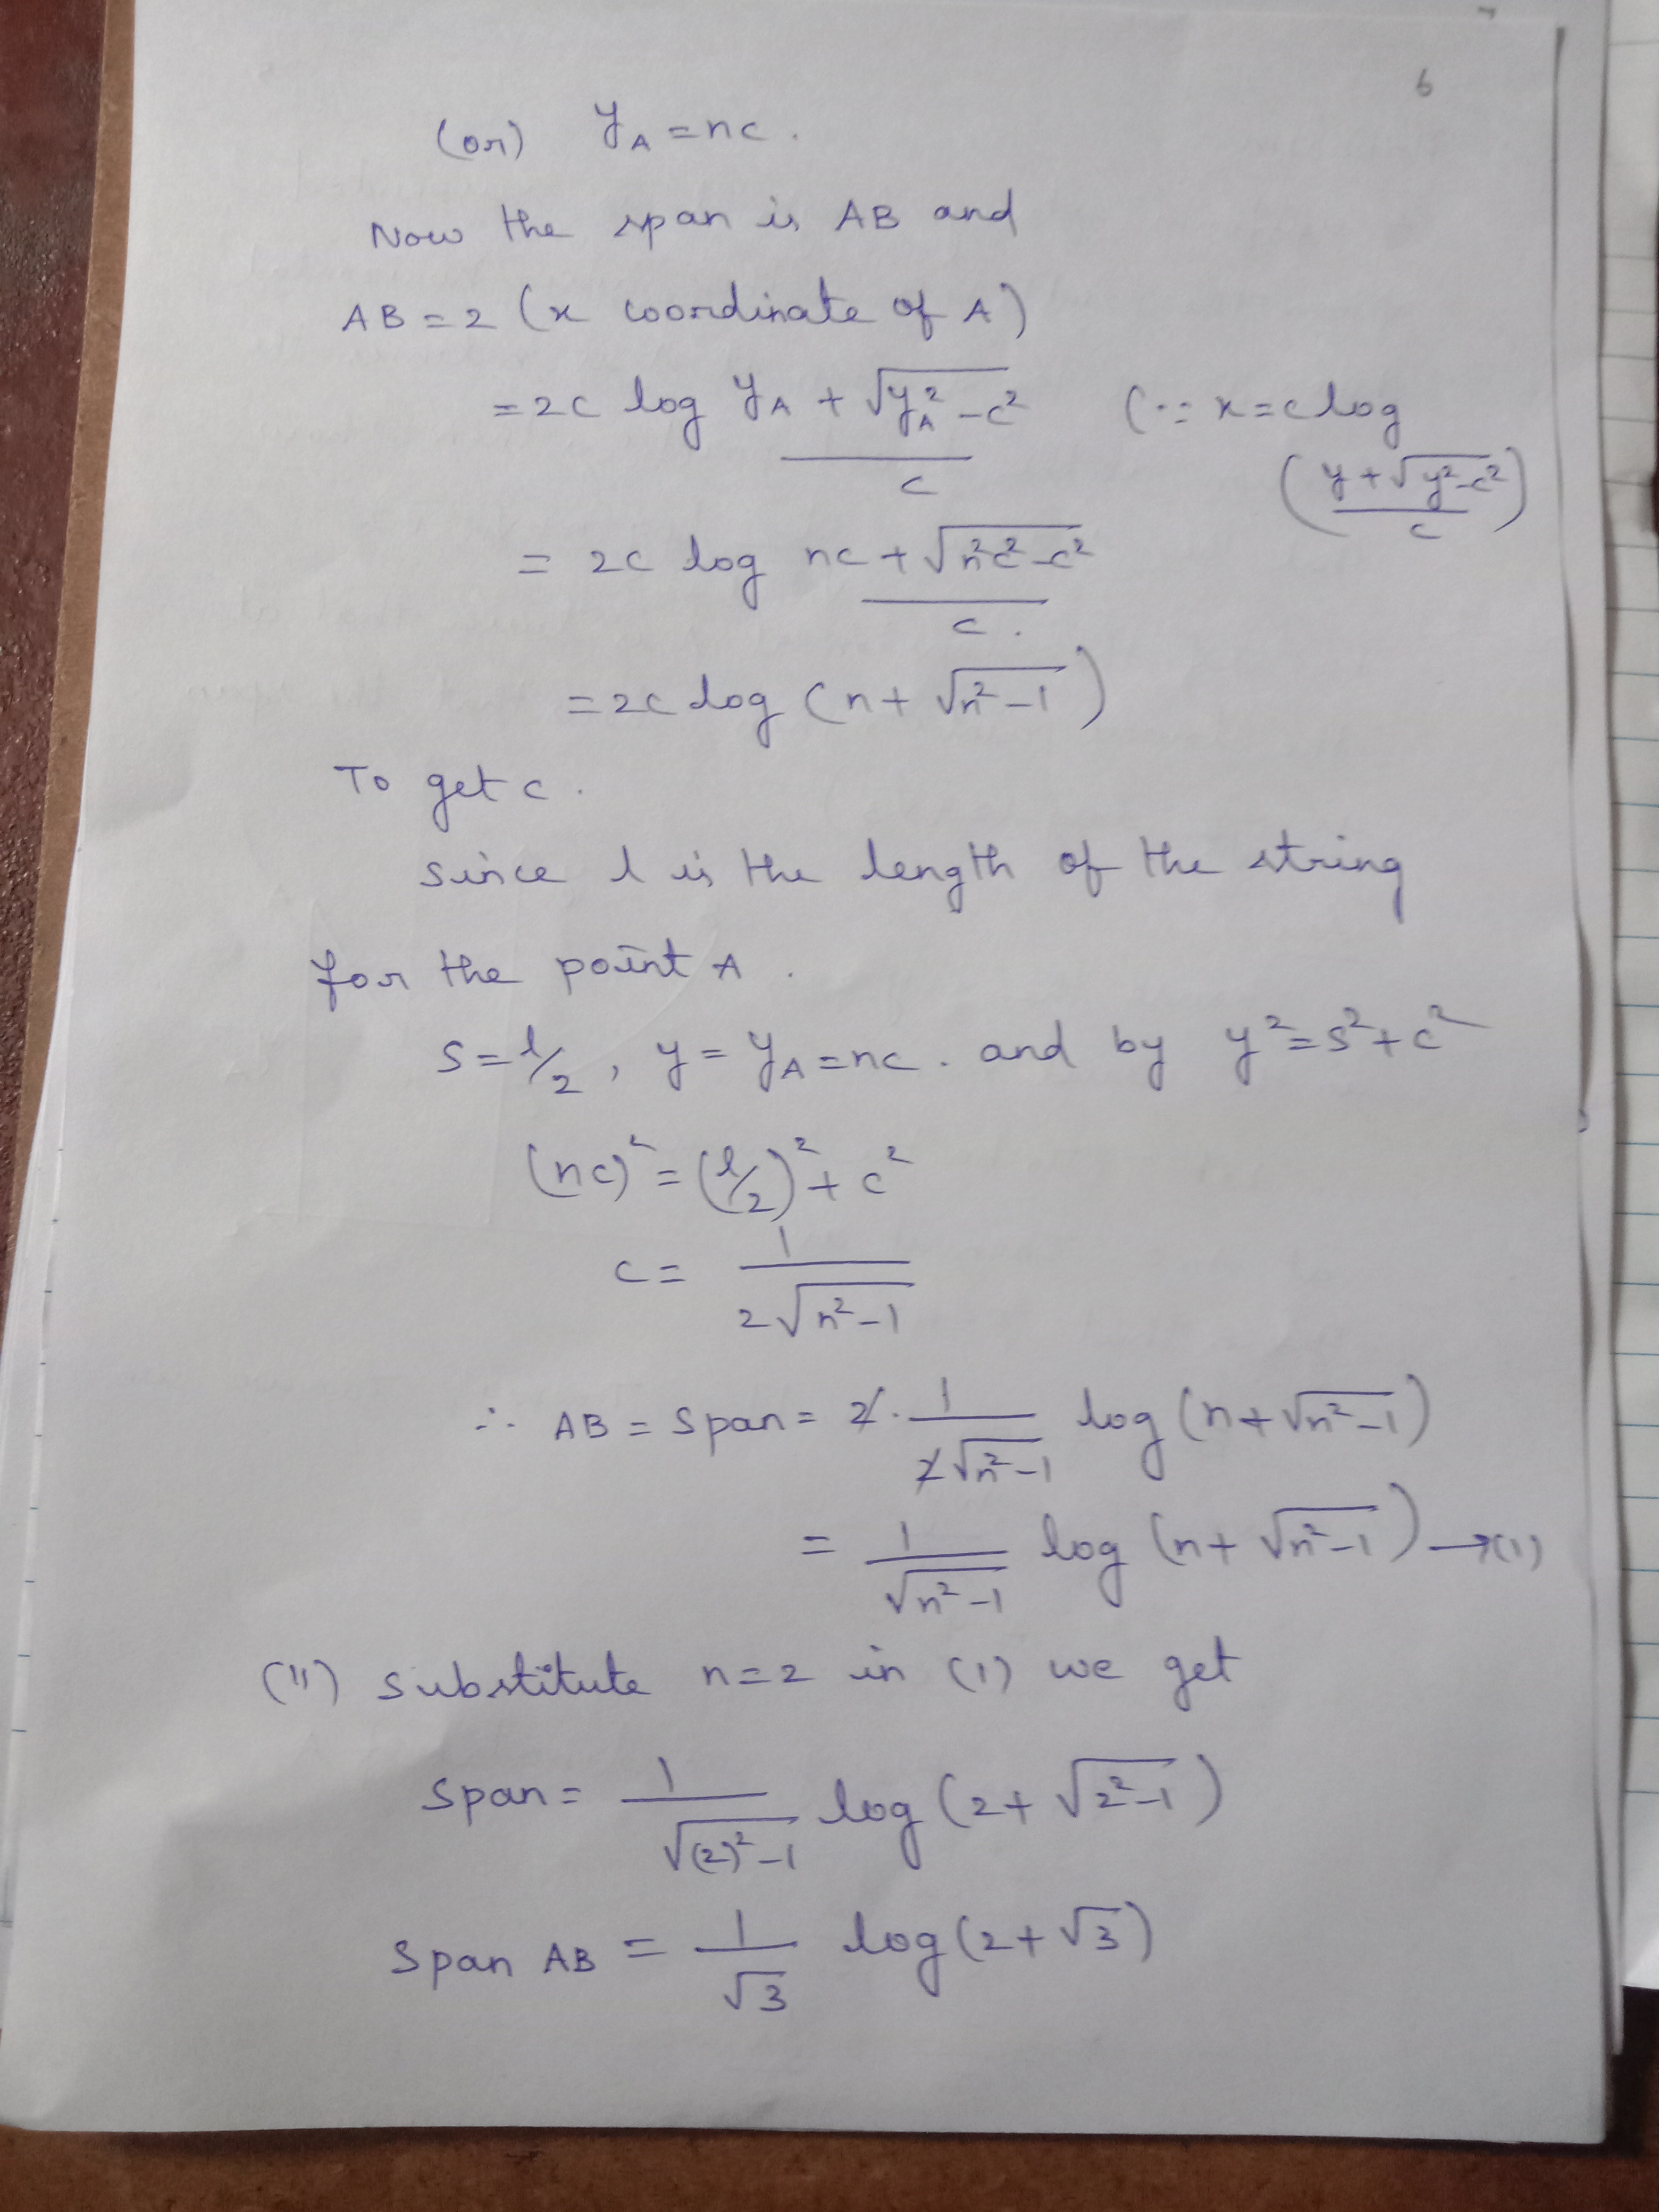 6
(or) y_A = nc .
Now the span is AB and
AB = 2 (x coordinate of A)
= 2c log (y_A + √(y_A² - c²))/c (∵ x = c log
((y + √(y² - c²))/c)
= 2c log (nc + √(n²c² - c²))/c .
= 2c log (n + √(n² - 1))
To get c .
since l is the length of the string
for the point A .
S = l/2 , y = y_A = nc . and by y² = s² + c²
(nc)² = (l/2)² + c²
c = 1/(2√(n² - 1))
∴ AB = Span = 2 · 1/(2√(n² - 1)) log (n + √(n² - 1))
= 1/√(n² - 1) log (n + √(n² - 1)) → (1)
(ii) substitute n = 2 in (1) we get
Span = 1/√((2)² - 1) log (2 + √(2² - 1))
Span AB = 1/√3 log (2 + √3)